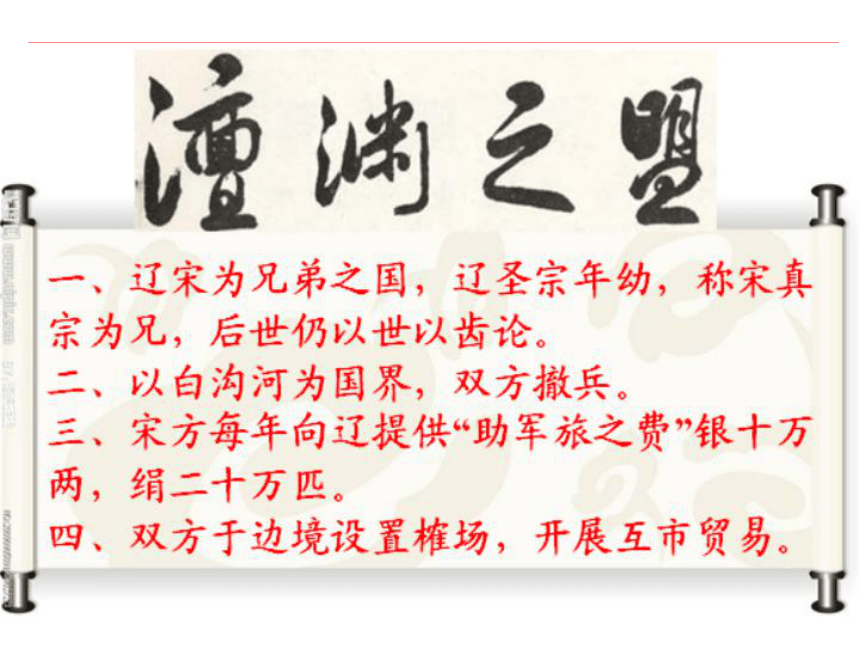 澶渊之盟
一、辽宋为兄弟之国，辽圣宗年幼，称宋真
宗为兄，后世仍以世以齿论。
二、以白沟河为国界，双方撤兵。
三、宋方每年向辽提供“助军旅之费”银十万
两，绢二十万匹。
四、双方于边境设置榷场，开展互市贸易。